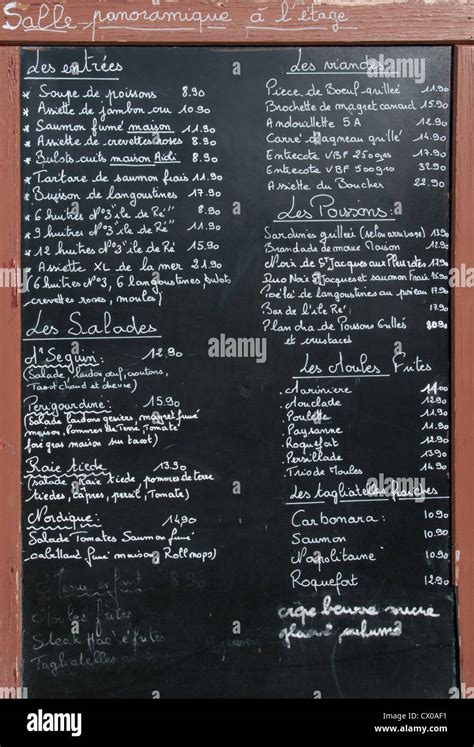 Salle panoramique à l'étage
Les entrées
* Soupe de poissons 8.90
* Assiette de jambon cru 10.90
* Saumon fumé maison 11.90
* Assiette de crevettes roses 8.90
* Bulots cuits maison Aïoli 8.90
* Tartare de saumon frais 11.90
* Buisson de langoustines 17.90
* 6 huitres N°3 "île de Ré" 8.90
* 9 huitres N°3 "île de Ré" 11.90
* 12 huitres N°3 "île de Ré 15.90
* Assiette XL de la mer 21.90
(6 huitres N°3, 6 langoustines bulots
crevettes roses, moules)
Les Salades
Mr Seguin: 12.90
(Salade, lardons, oeuf, croutons,
Toast chaud et chèvre)
Périgourdine: 15.90
(Salade lardons gesiers magret fumé
maison, Pommes de Terre Tomate
foie gras maison sur toast)
Raie tiède 13.90
(salade Raie tiède, pommes de terre
tièdes, câpres, persil, Tomate)
Nordique: 14.90
Salade Tomates Saumon fumé
cabillaud fumé maison Rollmops)
Menu enfant 8.90
Moules frites
Steak Haché frites
Tagliatelles
Les viandes
Pièce de Boeuf grillée 11.90
Brochette de magret canard 15.90
Andouillette 5A 12.90
Carré d'agneau grillé 14.90
Entrecote VBF 250grs 17.90
Entrecote VBF 500grs 32.90
Assiette du Boucher 22.90
Les Poissons:
Sardines grillées (selon arrivage) 13.90
Brandade de morue Maison 12.90
Noix de St Jacques aux Pleurotes 17.90
Duo Noix St Jacques et saumon frais 16.90
Poêlée de langoustines au 17.90
Bar de l'île Ré
Plancha de Poissons Grillés 20.90
et crustacés
Les Moules Frites
Marinière 11.00
Mouclade 12.90
Poulette 11.90
Paysanne 11.90
Roquefort 12.90
Persillade 11.90
Trio de Moules 14.90
Les tagliatelles fraîches
Carbonara: 10.90
Saumon 12.90
Napolitaine 10.90
Roquefort 12.90
crêpe beurre sucre
glace parfums
alamy
Image ID: CX0AF1
www.alamy.com